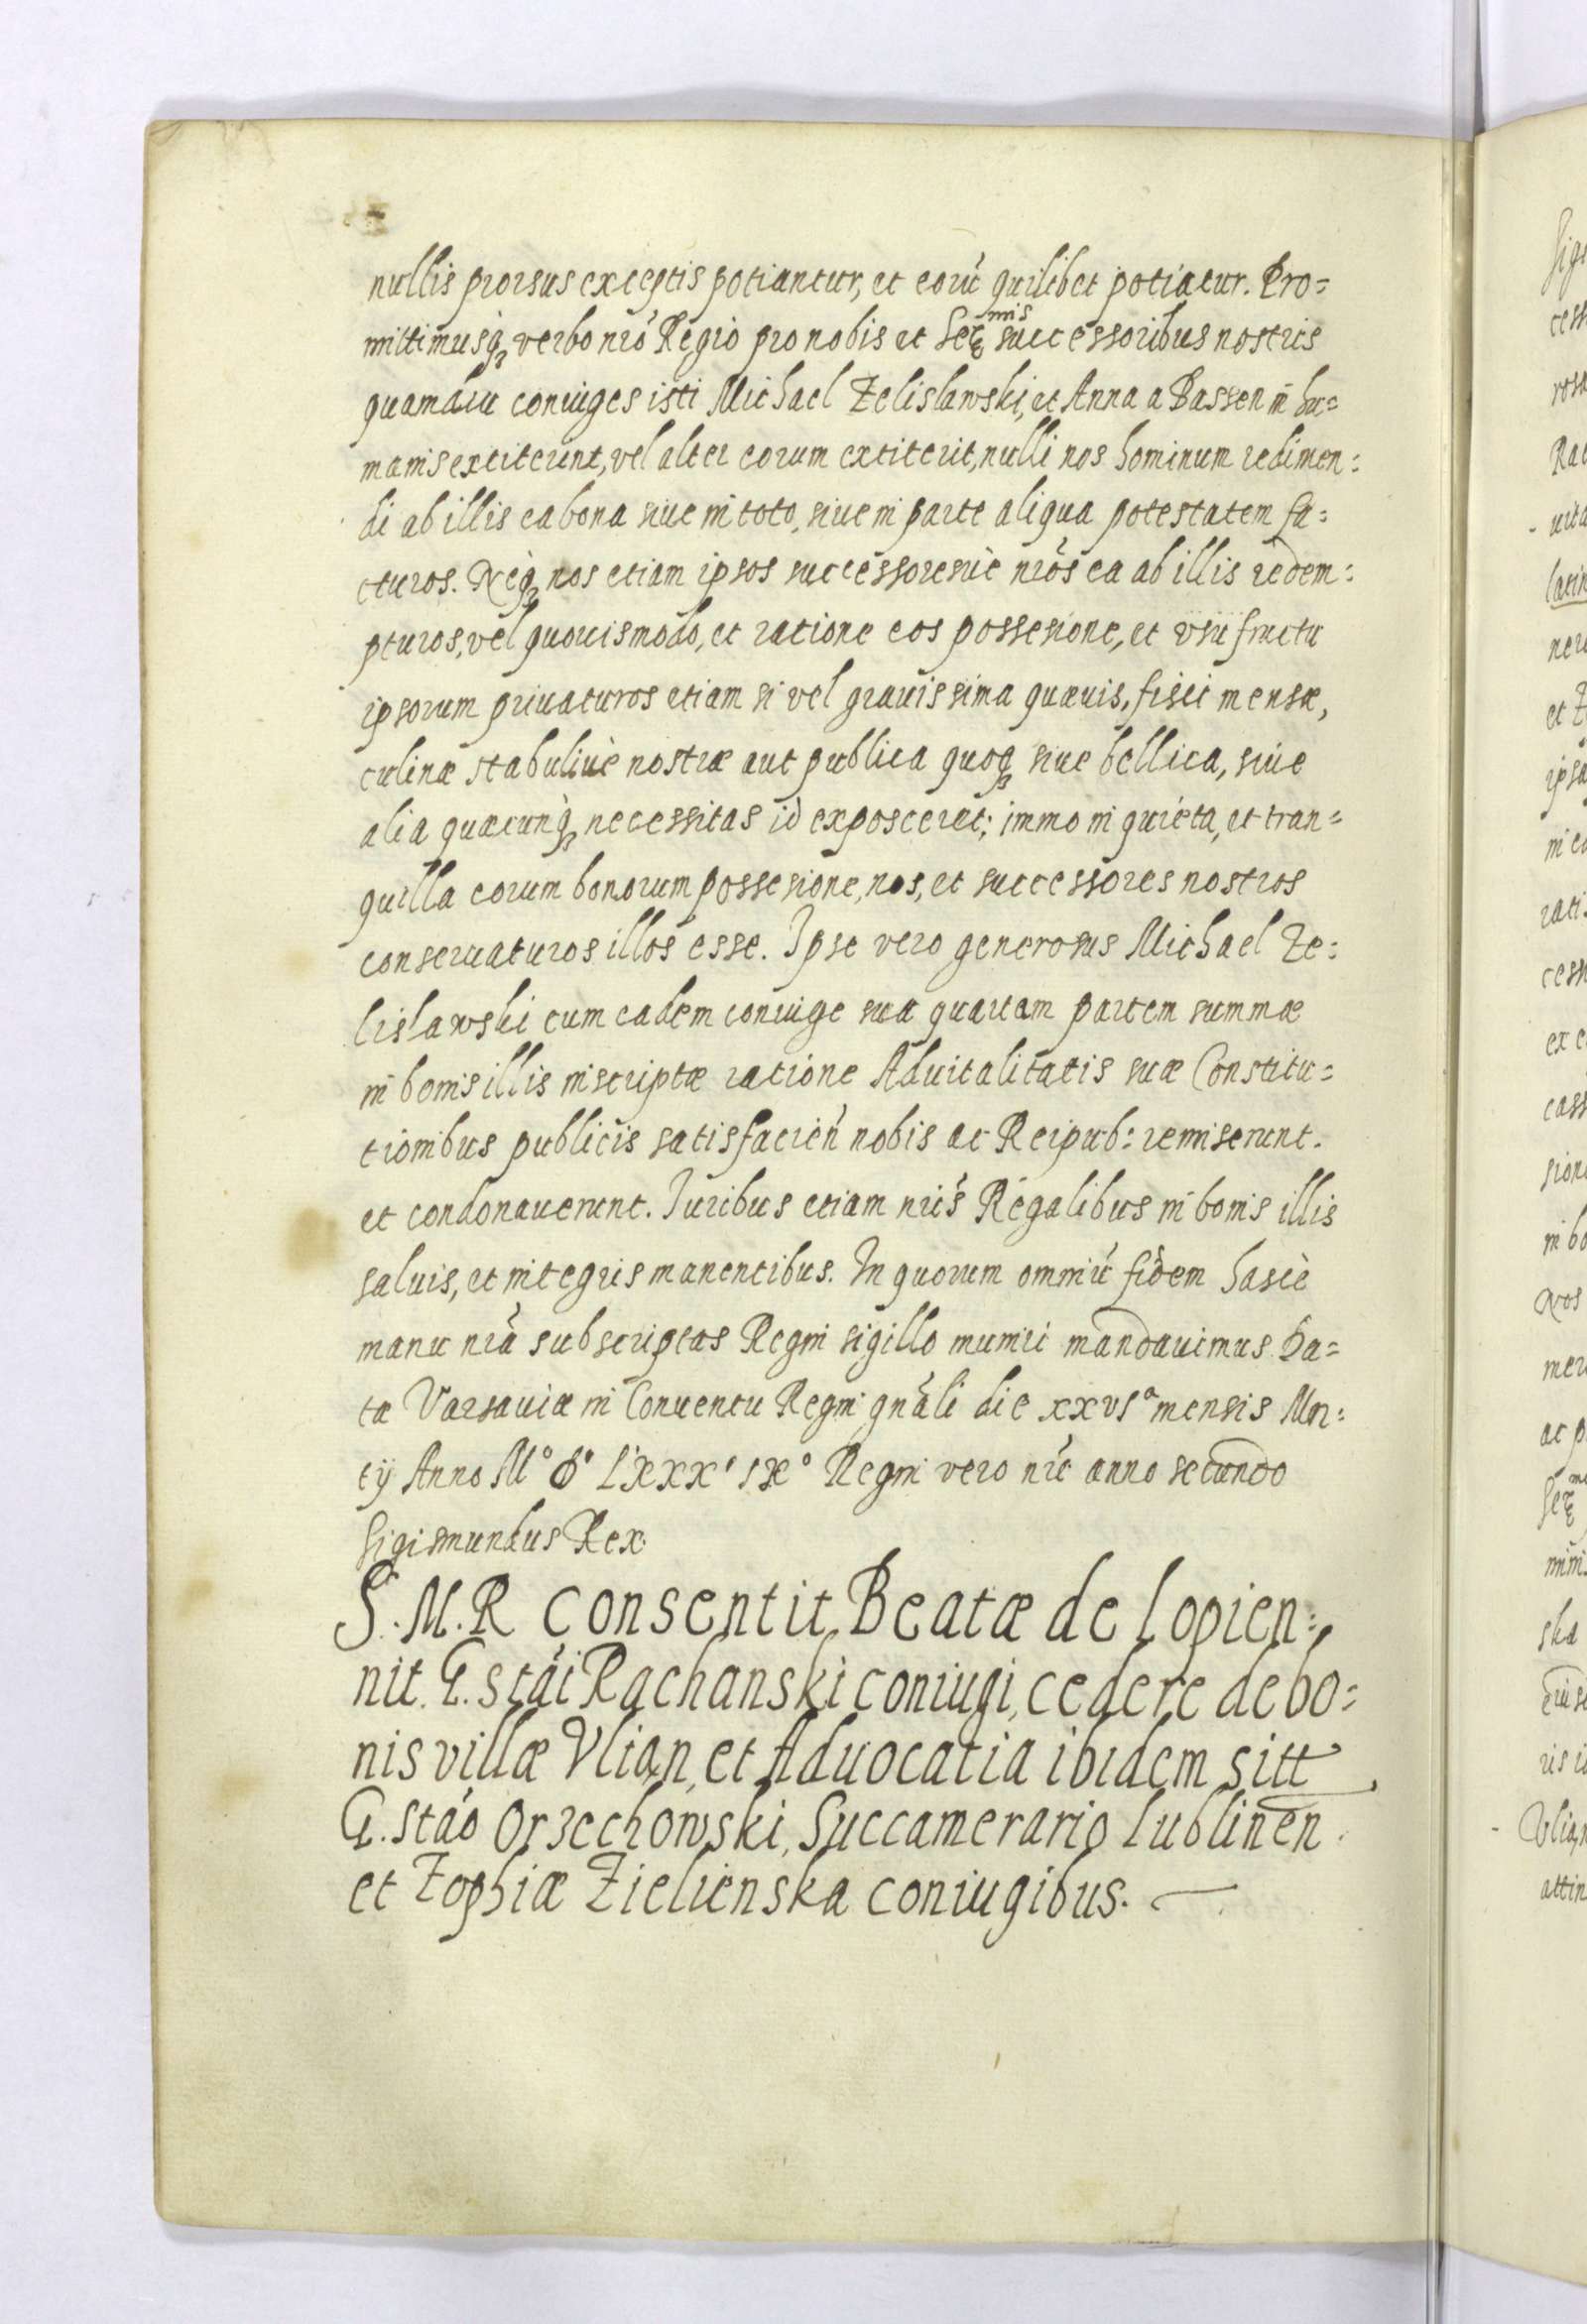 nullis prorsus exceptis potiantur, et eorū quilibet potiatur. Pro=
mittimusq₃ verbo nrō Regio pro nobis et Ser^mis successoribus nostris
quamdiu coniuges isti Michael Zelislawski, et Anna a Bassen in hu=
manis extiterint, vel alter eorum extiterit, nulli nos hominum redimen=
di ab illis ea bona siue in toto, siue in parte aliqua potestatem fa=
cturos. Neq₃ nos etiam ipsos successoresuè nrōs ea ab illis redem=
pturos, vel quouismodo, et ratione eos possesione, et vsufructu
ipsorum priuaturos etiam si vel grauissima quæuis, fisci mensæ,
culinæ stabuliuè nostræ aut publica quoq₃ siue bellica, siue
alia quæcunq₃ necessitas id exposceret; immo in quieta, et tran=
quilla eorum bonorum possesione, nos, et successores nostros
conseruaturos illos esse. Ipse vero generosus Michael Ze=
lislawski cum eadem coniuge sua quartam partem summæ
in bonis illis inscriptæ ratione Aduitalitatis suæ Constitu=
tionibus publicis satisfacień nobis ac Reipub: remiserunt.
et condonauerunt. Iuribus etiam nrīs Regalibus in bonis illis
saluis, et integris manentibus. In quorum omniū fidem hascè
manu nrā subscriptas Regni sigillo muniri mandauimus Da=
tæ Varsauiæ in Conuentu Regni gnāli die xxvi^a mensis Mar=
tij Anno M° D° Lxxx' ix° Regni vero nrī anno secundo
Sigismundus Rex.
S. M. R consentit Beatæ de Lopien=
nit. G. Stāi Rachanski coniugi, cedere de bo=
nis villæ Vlian, et Aduocatia ibidem sitt
G. Stāo Orzechowski, Succamerario Lublinen
et Zophiæ Zielienska coniugibus.